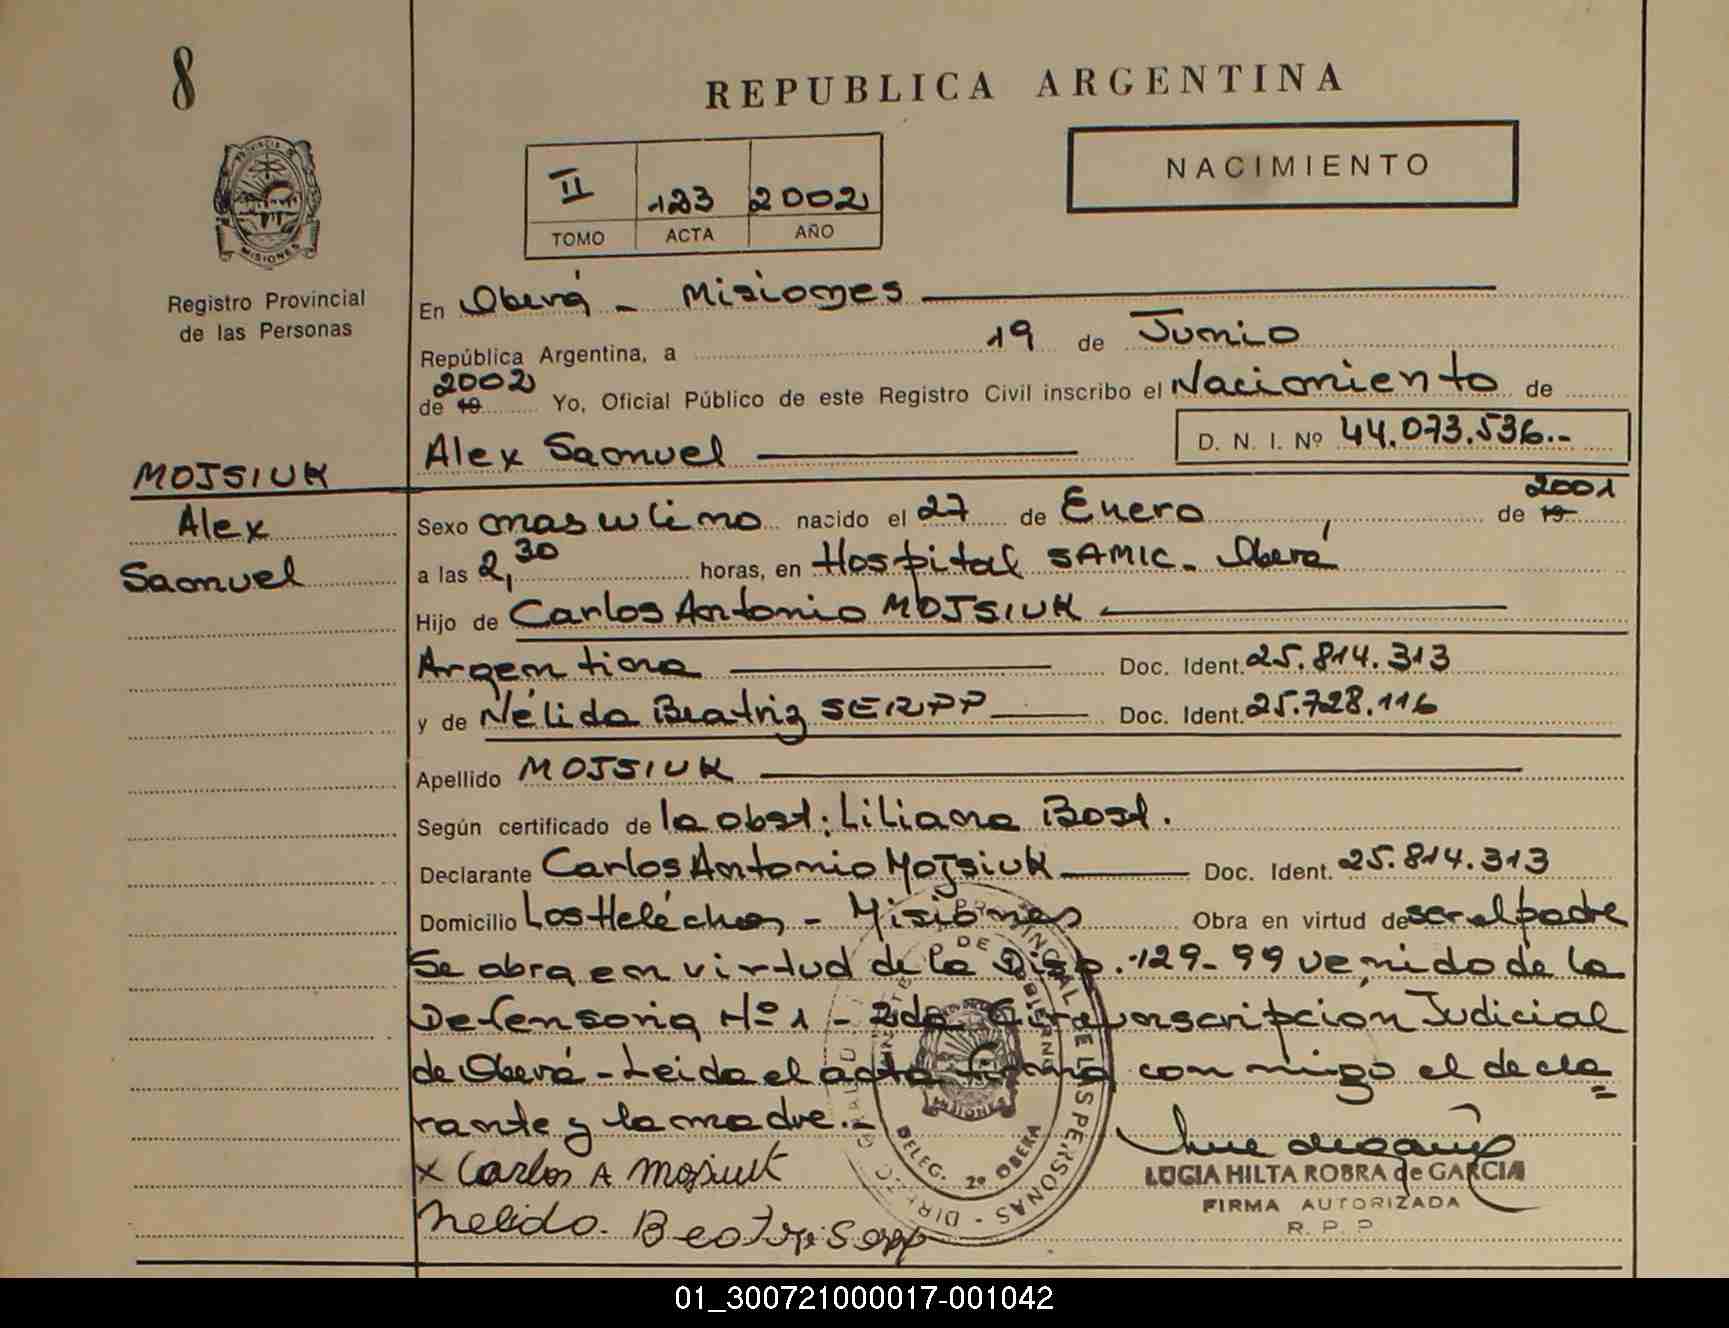 8
REPUBLICA ARGENTINA
NACIMIENTO
II 123 2002
TOMO ACTA AÑO
MISIONES
Registro Provincial
de las Personas
En Oberá - Misiones
República Argentina, a 19 de Junio
2002
de 19 Yo, Oficial Público de este Registro Civil inscribo el Nacimiento de
Alex Samuel D. N. I. Nº 44.073.536.-
MOJSIUK
Alex
Samuel
2001
Sexo masculino nacido el 27 de Enero de 19
a las 2,30 horas, en Hospital SAMIC - Oberá
Hijo de Carlos Antonio MOJSIUK
Argentina Doc. Ident. 25.814.313
y de Nélida Beatriz SERPP Doc. Ident. 25.728.116
Apellido MOJSIUK
Según certificado de la obst: Liliana Bost.
Declarante Carlos Antonio Mojsiuk Doc. Ident. 25.814.313
Domicilio Los Helechos - Misiones Obra en virtud de ser el padre
Se obra en virtud de la Disp. 129-99 venido de la
Defensoria Nº 1 - 2da Circunscripción Judicial
de Oberá - Leida el acta firma conmigo el decla
rante y la madre.-
x Carlos A Mojsiuk
Nelida Beatriz Serpp
PROVINCIAL DE LAS PERSONAS - DIREC
DE GOBIERNO
MISIONES
DELEG. 2º OBERA
LUCIA HILTA ROBRA de GARCIA
FIRMA AUTORIZADA
R. P. P.
01_300721000017-001042